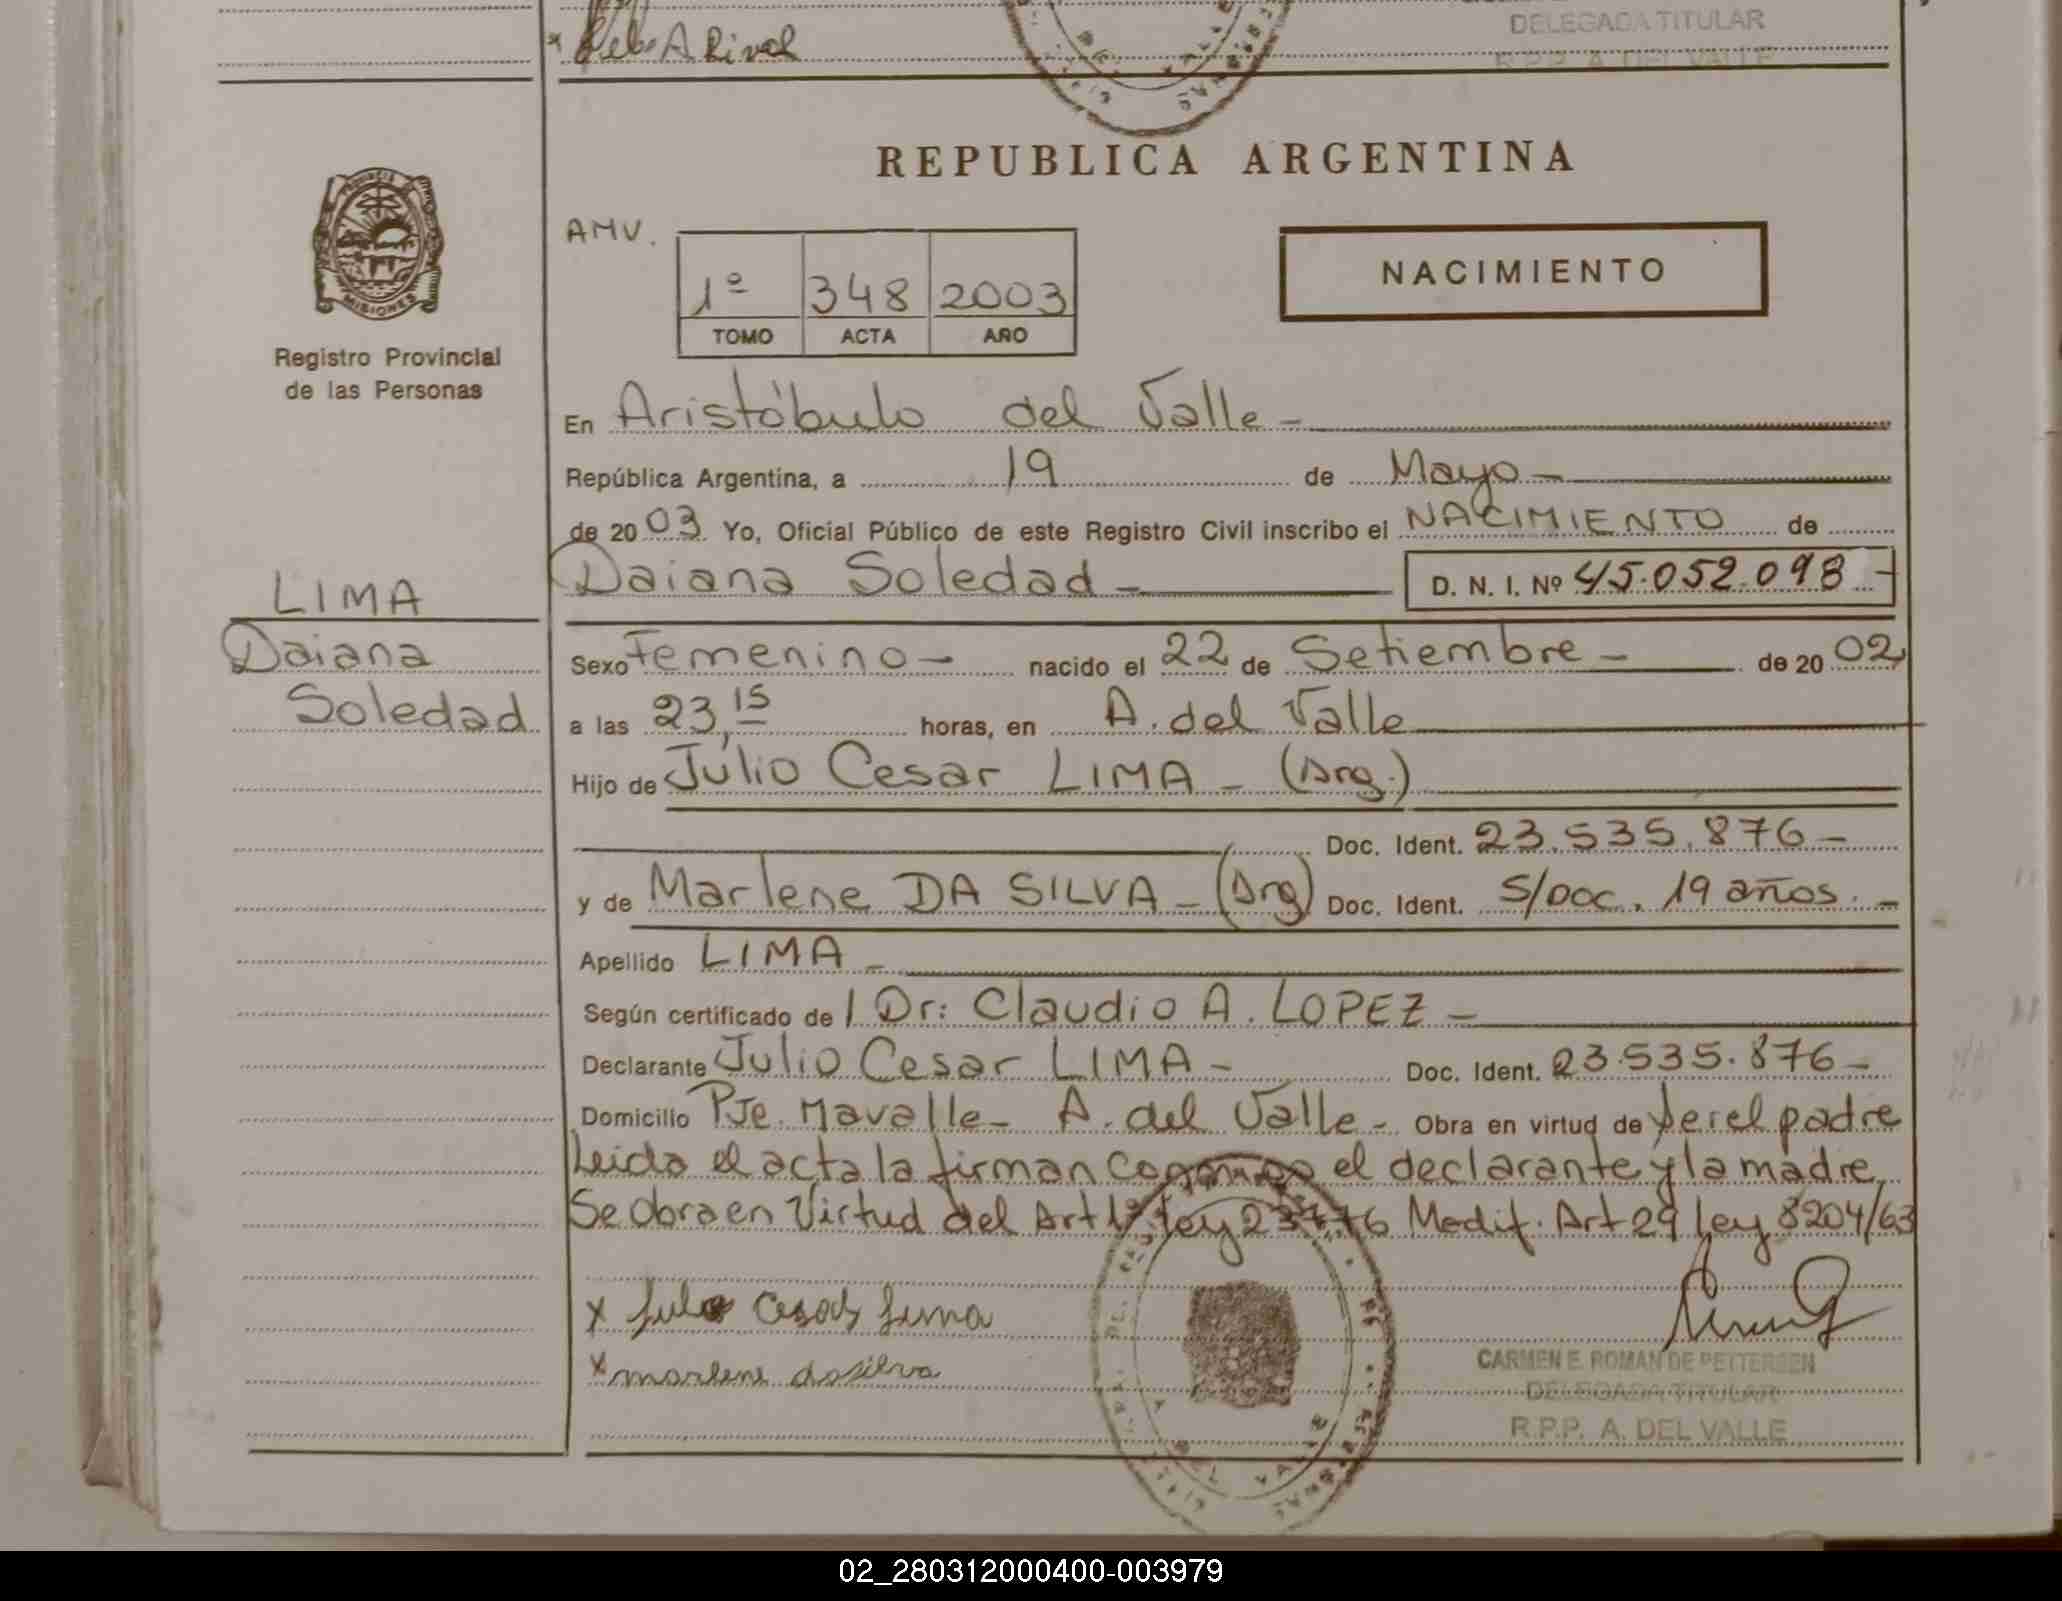 DELEGADA TITULAR
R.P.P. A. DEL VALLE
REPUBLICA ARGENTINA
PROVINCIA DE
MISIONES
Registro Provincial
de las Personas
AMV.
1º 348 2003
TOMO ACTA AÑO
NACIMIENTO
En Aristóbulo del Valle -
República Argentina, a 19 de Mayo -
de 20 03 Yo, Oficial Público de este Registro Civil inscribo el NACIMIENTO de
Daiana Soledad - D. N. I. Nº 45.052.098 -
LIMA
Daiana
Soledad
Sexo Femenino - nacido el 22 de Setiembre - de 20 02
a las 23,15 horas, en A. del Valle
Hijo de Julio Cesar LIMA - (Arg.)
Doc. Ident. 23.535.876 -
y de Marlene DA SILVA - (Arg) Doc. Ident. S/Doc. 19 años. -
Apellido LIMA -
Según certificado de / Dr: Claudio A. LOPEZ -
Declarante Julio Cesar LIMA - Doc. Ident. 23.535.876 -
Domicilio Pje. Mavalle - A. del Valle - Obra en virtud de ser el padre
Leida el acta la firman conmigo el declarante y la madre
Se obra en Virtud del Art 1º ley 23776 Modif. Art 29 ley 8204/63
x Julio Cesar Lima
x marlene dasilva
CARMEN E. ROMAN DE PETTERSEN
DELEGADA TITULAR
R.P.P. A. DEL VALLE
A. DEL VALLE
02_280312000400-003979